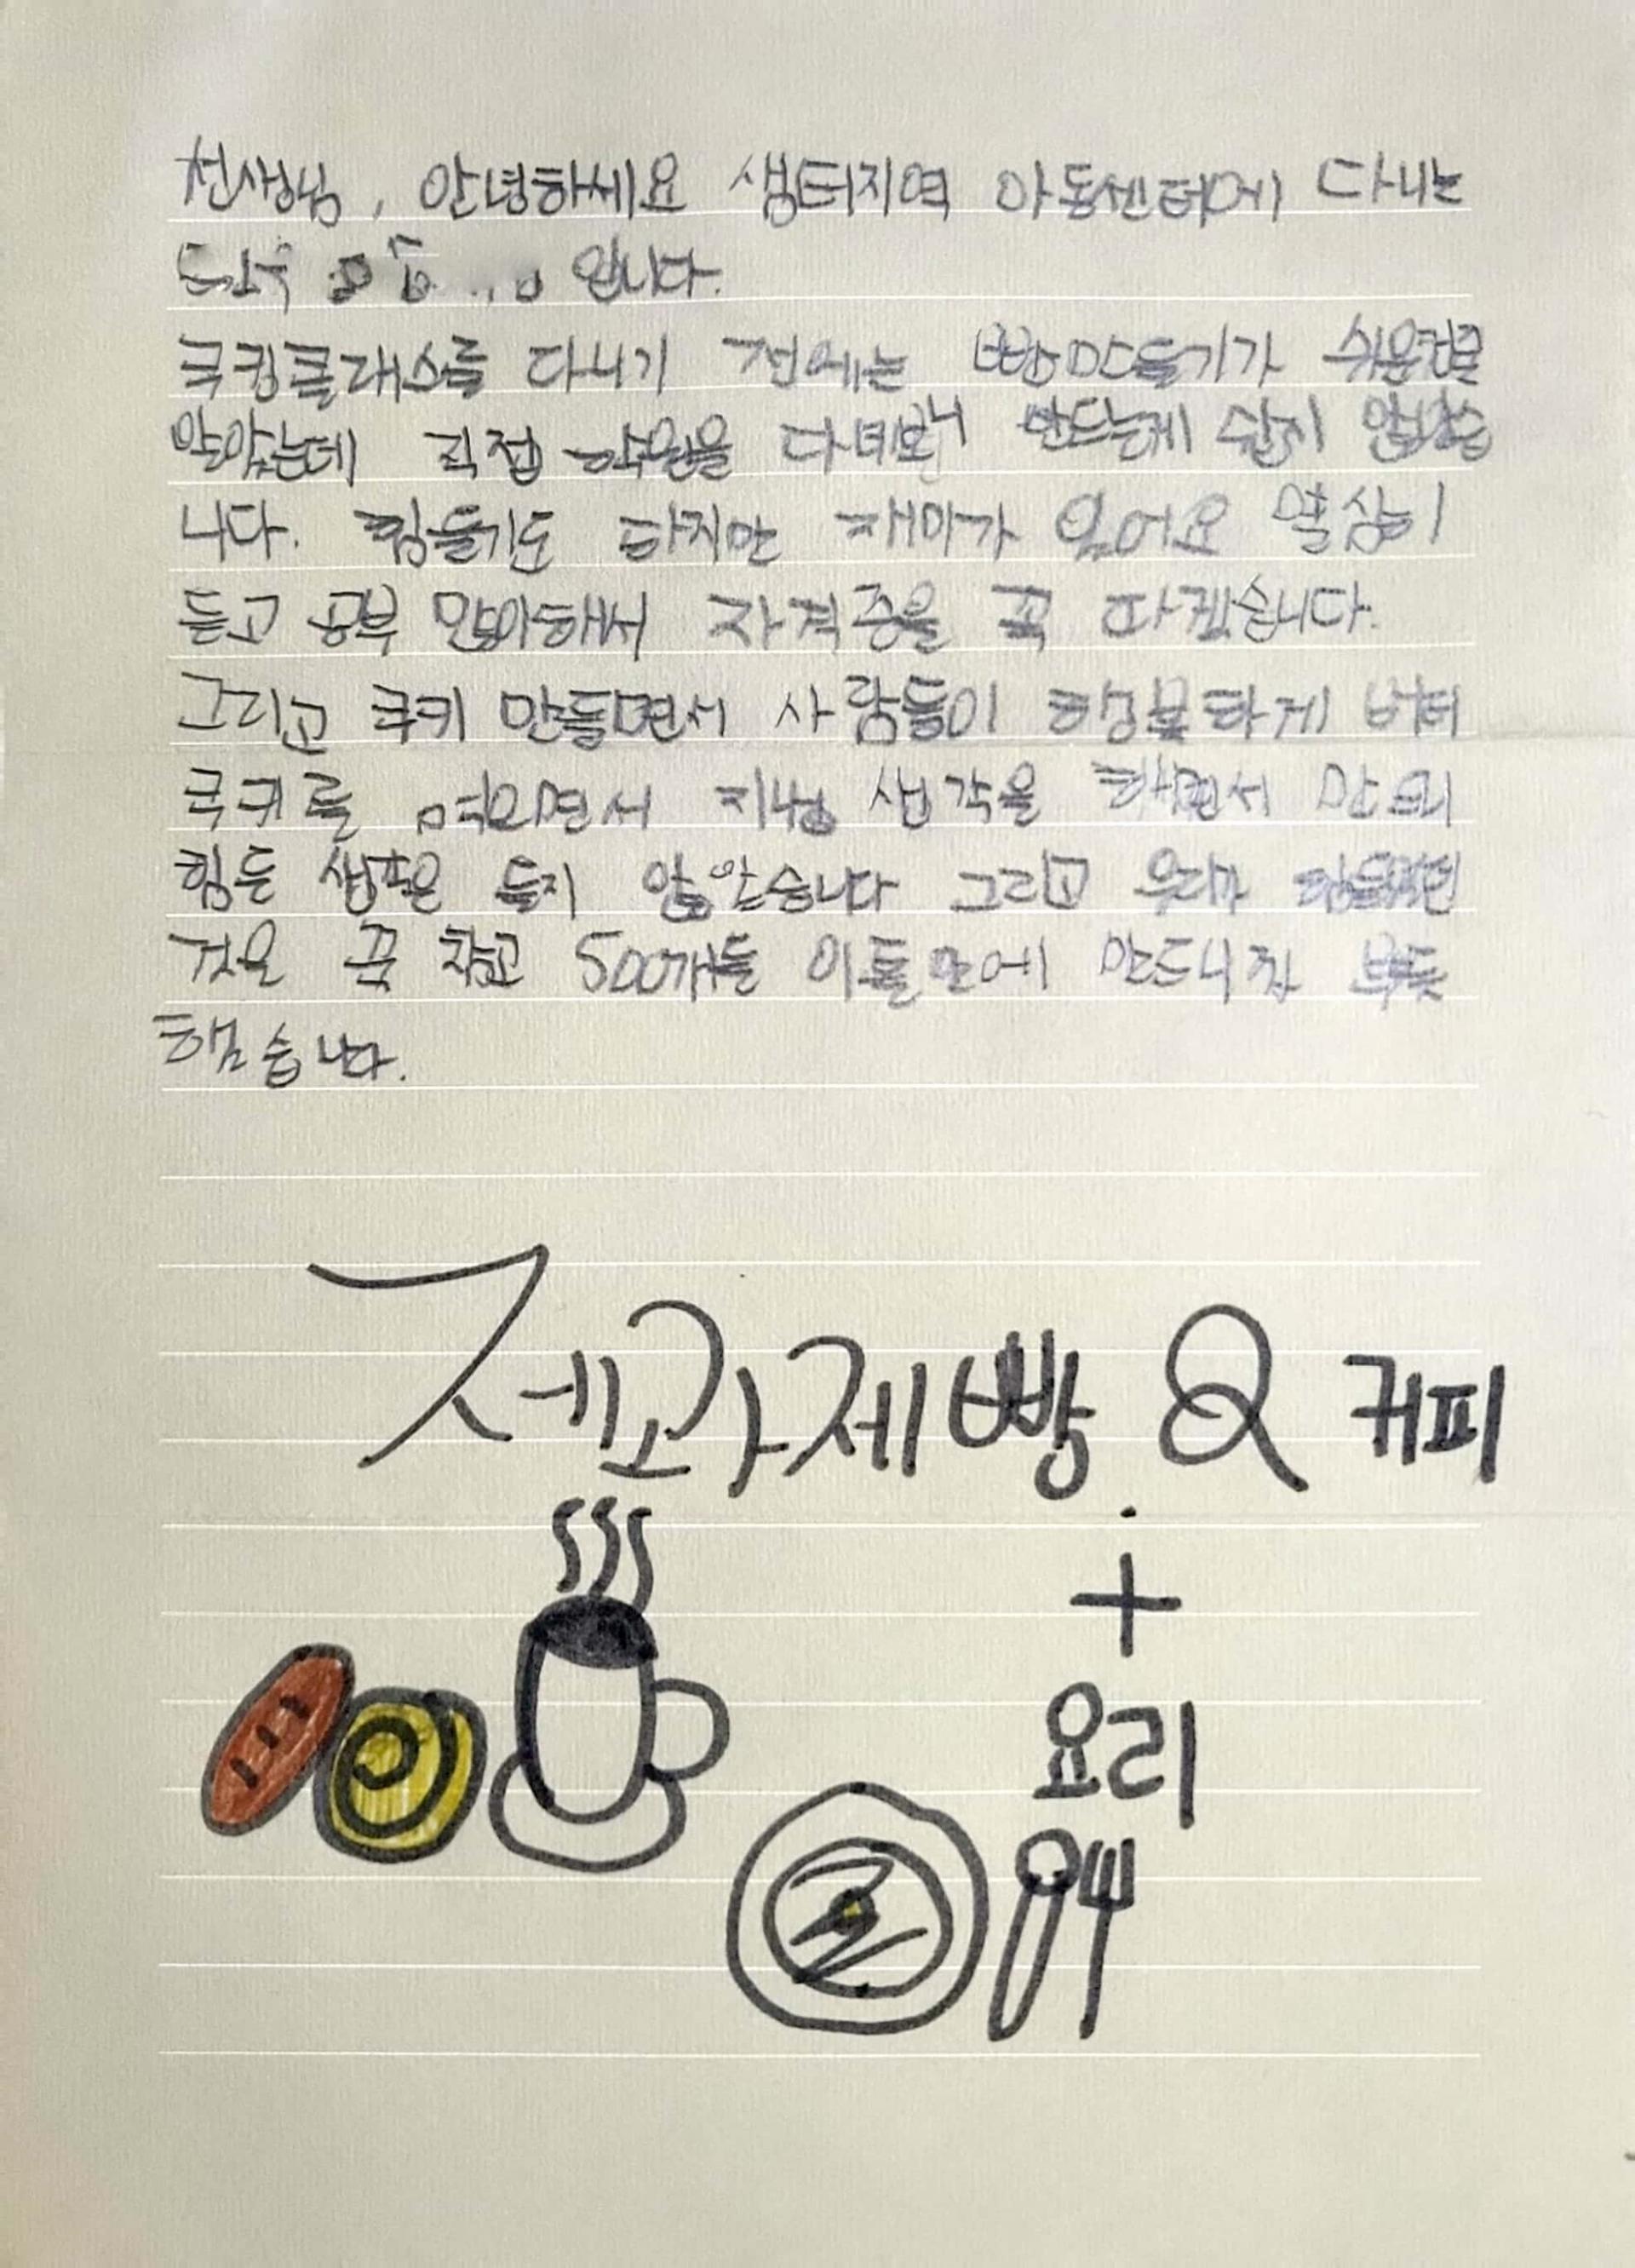 선생님, 안녕하세요 생터지역 아동센터에 다니는
입니다.
쿠킹클래스를 다니기 전에는 빵만들기가 쉬운건줄
알았는데 직접 학원을 다녀보니 만드는게 쉽지 않았습
니다. 힘들기도 하지만 재미가 있어요 열심히
듣고 공부 많이해서 자격증을 꼭 따겠습니다.
그리고 쿠키 만들면서 사람들이 행복하게 버터
쿠키를 먹으면서 지낼 생각을 하면서 만드니
힘든 생각은 들지 않았습니다 그리고 우리가 힘들었던
것을 꾹 참고 500개를 이틀만에 만드니 참 뿌듯
했습니다.
제과제빵 & 커피
+
요리